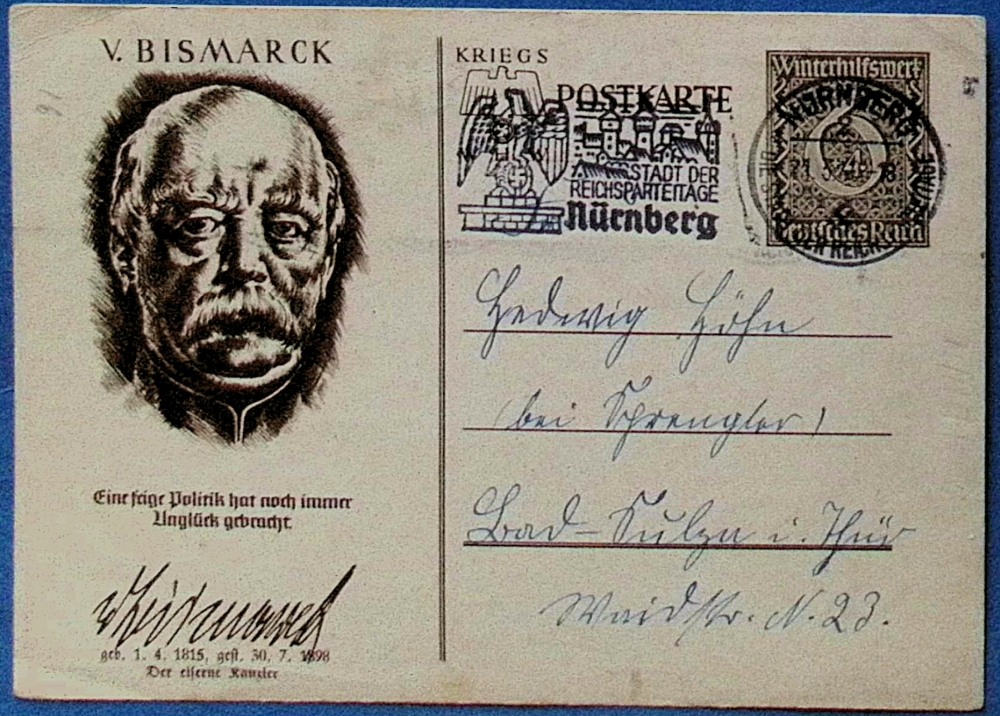 V. BISMARCK
Eine feige Politik hat noch immer
Unglück gebracht.
v Bismarck
geb. 1. 4. 1815, gest. 30. 7. 1898
Der eiserne Kanzler
KRIEGS
POSTKARTE
STADT DER
REICHSPARTEITAGE
Nürnberg
Winterhilfswerk
NÜRNBERG
6
Deutsches Reich
Hedwig Höhn
(bei Sprengler)
Bad-Sulza i. Thür
Waidstr. N. 23.